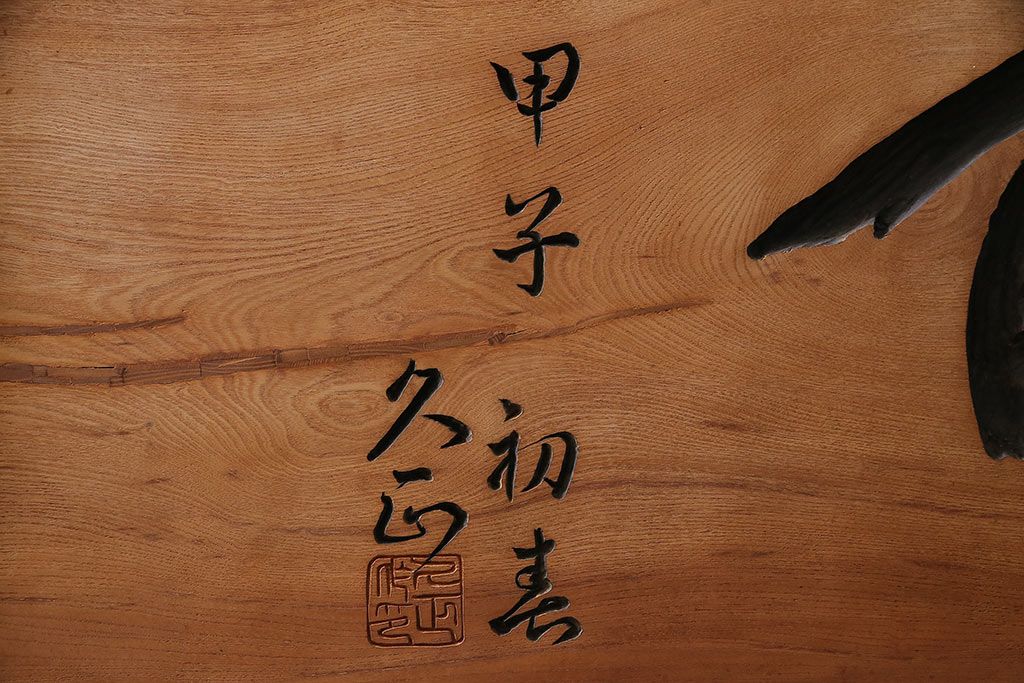 甲子初春
久正